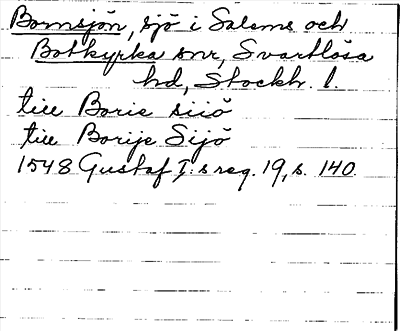 Bornsjön, sjö i Salems och
Botkyrka snr, Svartlösa
hd, Stockh. l.
till Borie siiö
till Borije Sijö
1548 Gustaf I:s reg. 19, s. 140.